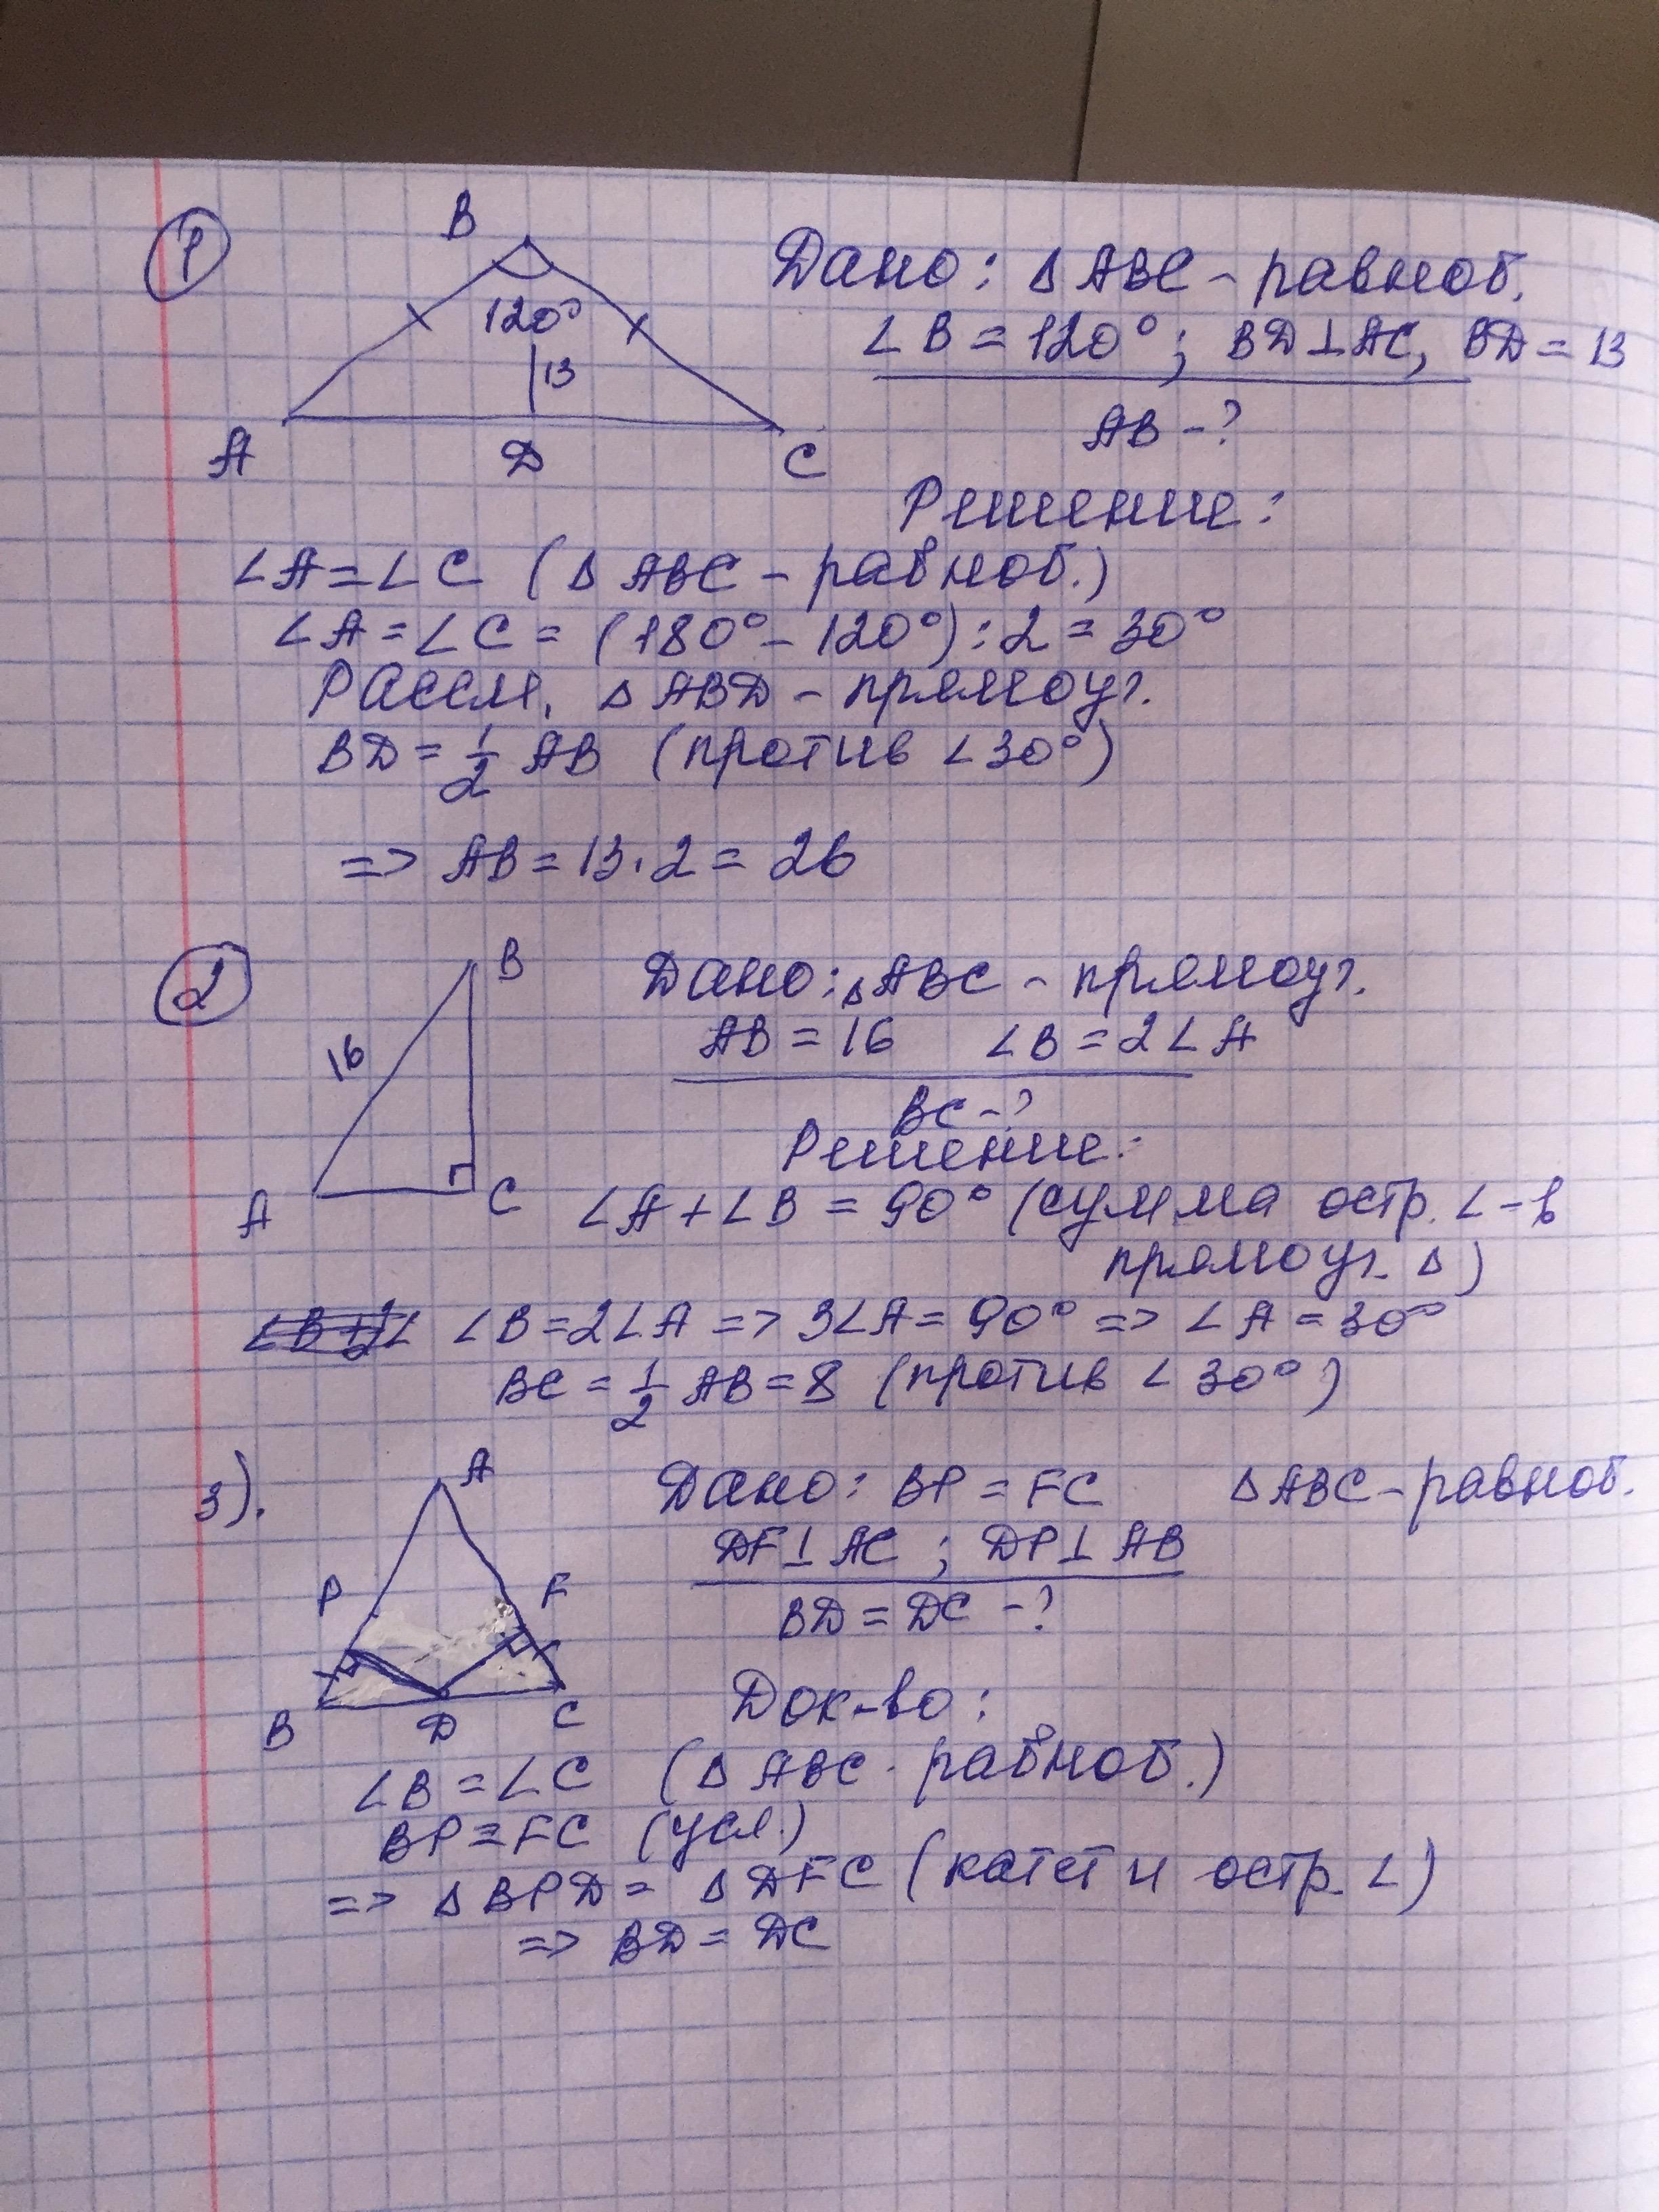 1
B
120°
13
A D C
Дано: Δ ABC - равноб.
∠B = 120°; BD⊥AC, BD = 13
AB - ?
Решение:
∠A = ∠C (Δ ABC - равноб.)
∠A = ∠C = (180° - 120°) : 2 = 30°
Рассм. Δ ABD - прямоуг.
BD = 1/2 AB (против ∠30°)
=> AB = 13 · 2 = 26
2
B
16
A C
Дано: Δ ABC - прямоуг.
AB = 16 ∠B = 2∠A
BC - ?
Решение:
∠A + ∠B = 90° (сумма остр. ∠-в
прямоуг. Δ)
∠B = 2∠A => 3∠A = 90° => ∠A = 30°
BC = 1/2 AB = 8 (против ∠30°)
3).
A
P F
B D C
Дано: BP = FC Δ ABC - равноб.
DF⊥AC ; DP⊥AB
BD = DC - ?
Док-во:
∠B = ∠C (Δ ABC - равноб.)
BP = FC (усл.)
=> Δ BPD = Δ DFC (катет и остр. ∠)
=> BD = DC